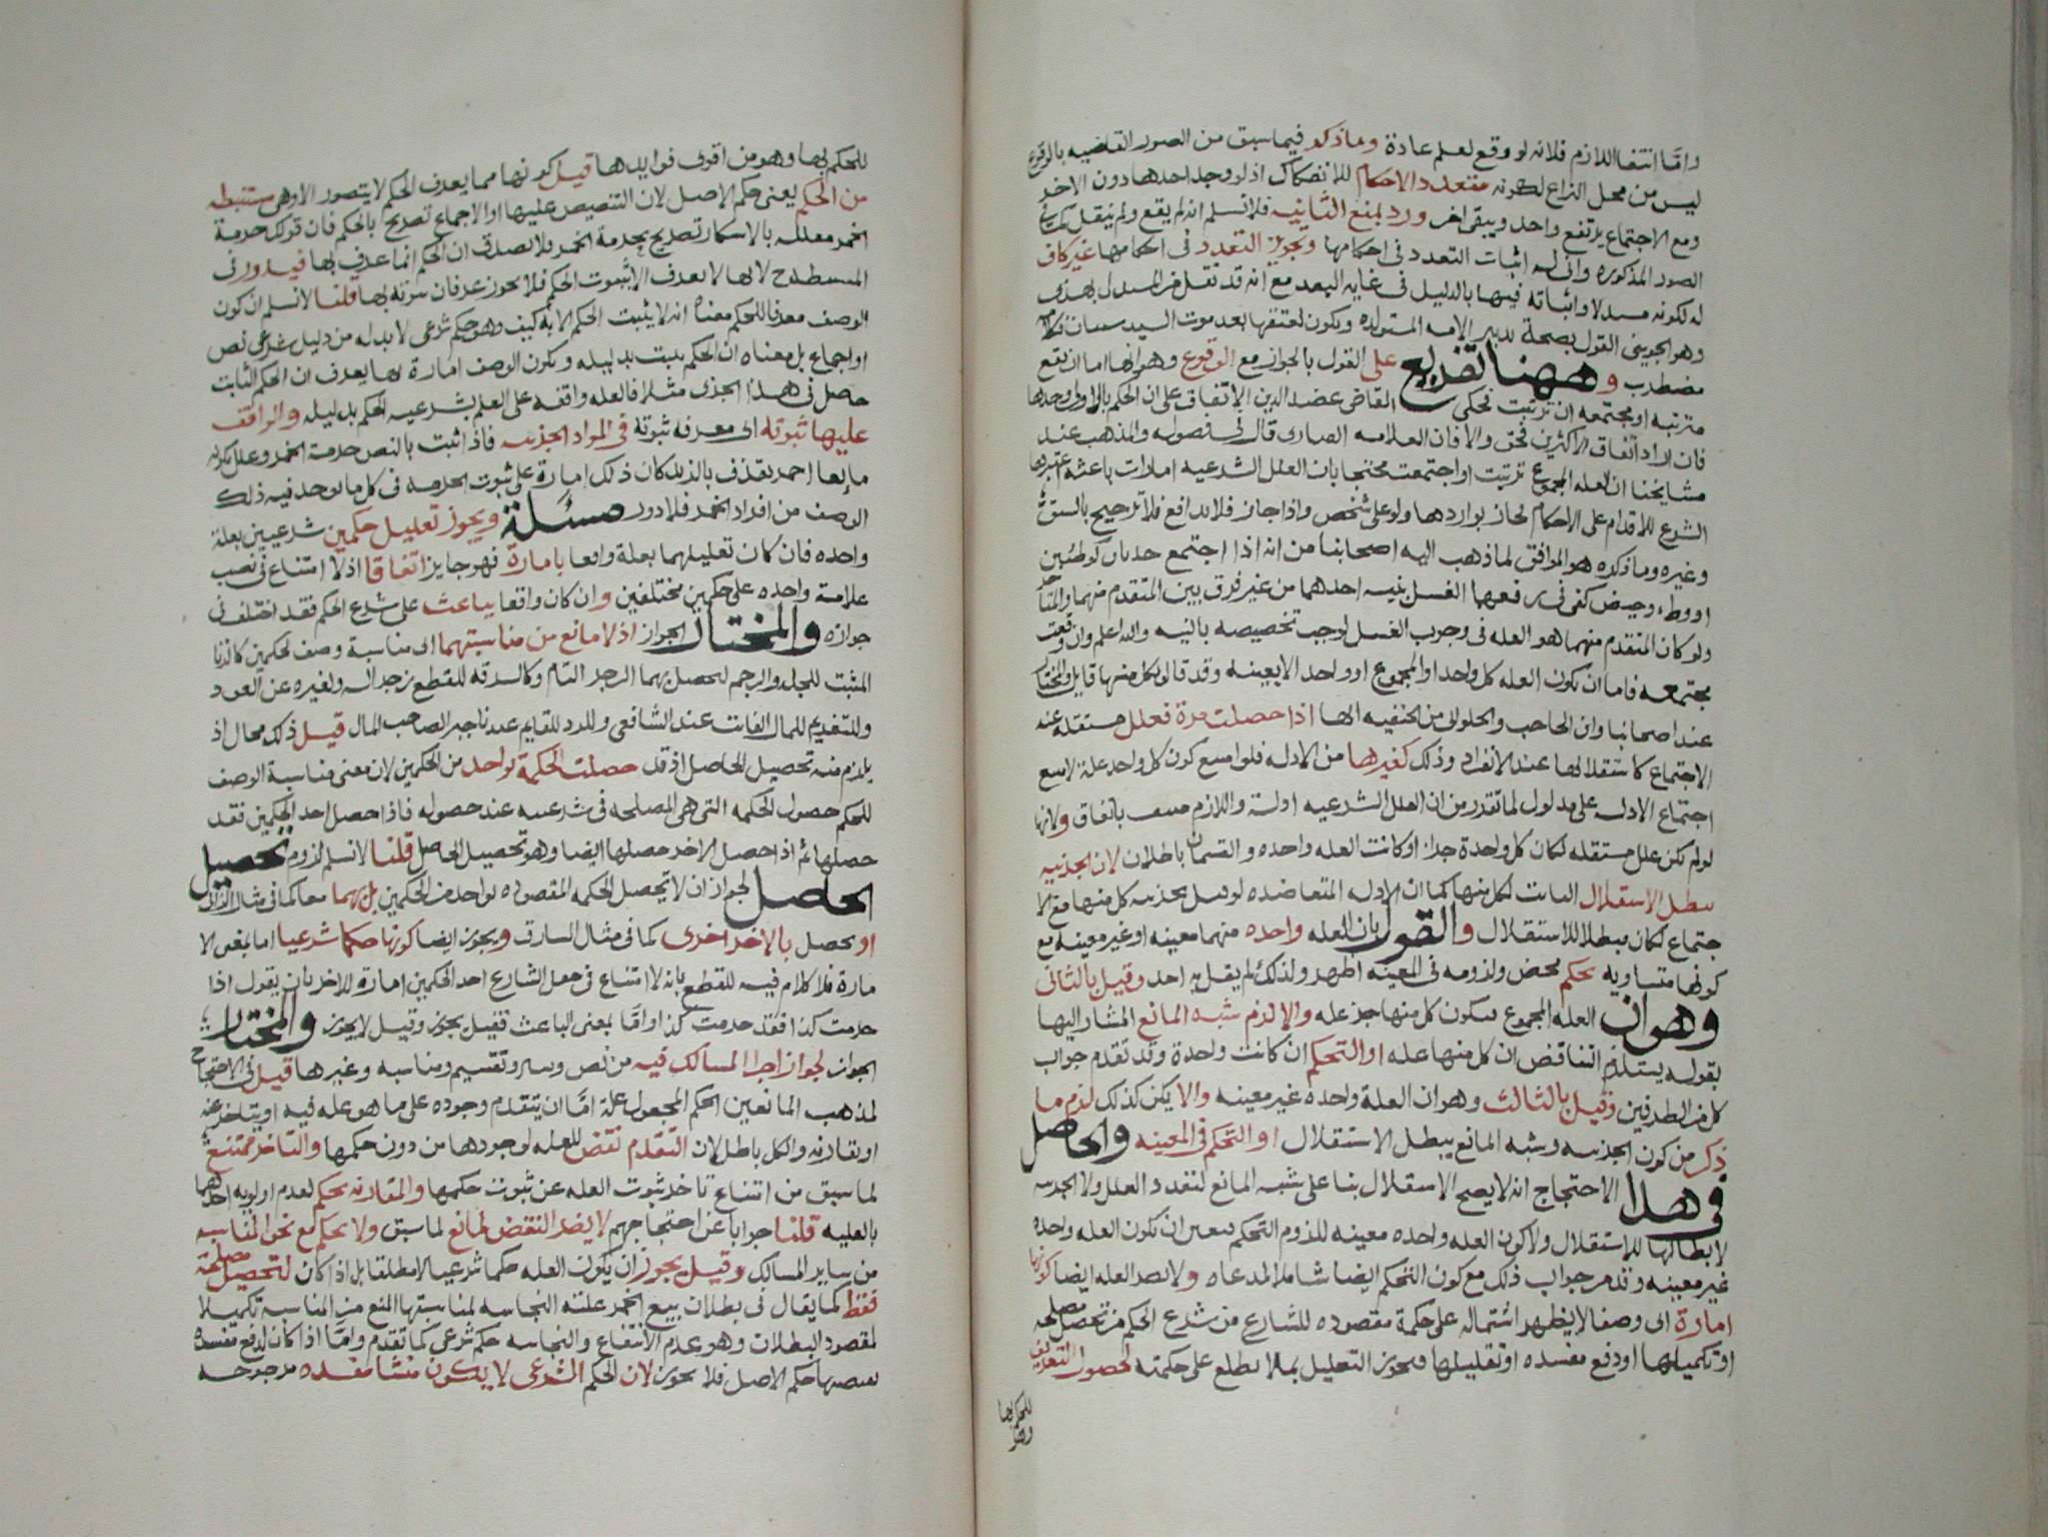 وامّا انتفا اللازم فلانه لو وقع لعلم عادة وما ذكر فيما سبق من الصور القاضيه بالوقوع
ليس من محل النزاع لكونه متعدد الاحكام للانفكاك اذ لو وجد احدها دون الاخر
ومع الاجتماع يرتفع واحد ويبقى اخر ورد بمنع الثانيه فلا نسلم انه لم يقع ولم ينقل
الصور المذكوره وانى له اثبات التعدد فى احكامها وتجويز التعدد فى احكامها غير كاف
له لكونه مستدلا واثباته فيها بالدليل فى غايه البعد مع انه قد نقل من
وهو الجوينى القول بصحة تدبير الامه المستولده ويكون لعتقها بعد موت السيد سببان
مضطرب وههنا تفريع على القول بالجواز مع الوقوع وهو انها اما ان تقع
مترتبه او مجتمعه ان ترتبت فحكى القاضى عضد الدين الاتفاق على ان الحكم بالاولى وحدها
فان اراد اتفاق الاكثرين فحق والا فان العلامه قال فى فصوله والمذهب عند
مشايخنا ان العله المجموع ترتبت او اجتمعت محتجا بان العلل الشرعيه امارات باعثه اعتبرها
الشرع للاقدام على الاحكام لجاز تواردها ولو على شخص واذا جاز فلا تدافع فلا ترجيح بالسبق
وغيره وما ذكره هو الموافق لما ذهب اليه اصحابنا من انه اذا اجتمع حدثان كوطئين
او وطء وحيض كفى فى رفعهما الغسل بنيه احدهما من غير فرق بين المتقدم منهما والمتاخر
ولو كان المتقدم منهما هو العله فى وجوب الغسل لوجب تخصيصه بالنيه والله اعلم وان وقعت
مجتمعه فاما ان تكون العله كل واحد او المجموع او واحد لا بعينه وقد قال بكل منها قايل والمختار
عند اصحابنا وابن الحاجب والحلوانى من الحنفيه انها اذا حصلت مرة فعلل مستقله عند
الاجتماع كاستقلالها عند الانفراد وذلك كغيرها من الادله فلو امتنع كون كل واحد علة لامتنع
اجتماع الادله على مدلول لما تقدر من ان العلل الشرعيه ادلة واللازم منتف باتفاق ولانها
لو لم تكن علل مستقله لكان كل واحدة جزا او كانت العله واحده والقسمان باطلان لان الجزئيه
تبطل الاستقلال الثابت لكل منها كما ان الادله المتعاضده لو قيل بجزئيه كل منها مع الا
جتماع لكان مبطلا للاستقلال والقول بان العله واحده منهما معينه او غير معينه مع
كونها متساويه تحكم محض ولزومه فى المعينه اظهر ولذلك لم يقل به احد وقيل بالثانى
وهو ان العله المجموع فيكون كل منها جزء عله والا لزم شبه المانع المشار اليها
بقوله يستلزم التناقض ان كل منها عله او التحكم ان كانت واحدة وقد تقدم جواب
كل من الطرفين وقيل بالثالث وهو ان العلة واحده غير معينه والا يكن كذلك لزم ما
ذكر من كون الجزئيه وشبه المانع يبطل الاستقلال او التحكم فى المعينه والحاصل
فى هذا الاحتجاج انه لا يصح الاستقلال بنا على شبه المانع لتعدد العلل ولا الجزئيه
لابطالها للاستقلال ولا كون العله واحده معينه للزوم التحكم فتعين ان تكون العله واحده
غير معينه وتقدم جواب ذلك مع كون التحكم ايضا شاملا لمدعاه ولا تصر العله ايضا كونها
امارة اى وصفا لا يظهر اشتماله على حكمة مقصوده للشارع من شرع الحكم من تحصيل مصلحه
او تكميلها او دفع مفسده او تقليلها فيجوز التعليل بما لا يطلع على حكمته لحصول التعريف
للحكم بها
وهو
للحكم بها وهو من اقوى فوايدها قيل كونها مما يعرف الحكم لا يتصور الا وهى مستنبطه
من الحكم يعنى حكم الاصل لان التنصيص عليها او الاجماع تصريح بالحكم فان قولك حرمة
الخمر معلله بالاسكار تصريح بحرمة الخمر فلا يصدق ان الحكم انما عرف بها فيدور فى
المستنبطه لانها لا تعرف الا بثبوت الحكم فلا يجوز عرفان ثبوته بها قلنا لا نسلم ان كون
الوصف معرفا للحكم معناه انه لا يثبت الحكم الا به كيف وهو حكم شرعى لا بد له من دليل شرعى نص
او اجماع بل معناه ان الحكم يثبت بدليله ويكون الوصف امارة بها يعرف ان الحكم الثابت
حصل فى هذا الجزى مثلا فالعله واقفه على العلم بشرعيه الحكم بدليله والواقف
عليها ثبوته اى معرفه ثبوته فى المواد الجزئيه فاذا ثبت بالنص حرمت الخمر وعلل بكونه
مايعا احمر يقذف بالزبد كان ذلك امارة على ثبوت الحرمه فى كل ما يوجد فيه ذلك
الوصف من افراد الخمر فلا دور مسئلة ويجوز تعليل حكمين شرعيين بعلة
واحده فان كان تعليلهما بعلة واقعا بامارة فهو جايز اتفاقا اذ لا امتناع فى نصب
علامة واحده على حكمين مختلفين وان كان واقعا بباعث على شرع الحكم فقد اختلف فى
جوازه والمختار الجواز اذ لا مانع من مناسبتهما اى مناسبة وصف لحكمين كالزنا
المثبت للجلد والرجم لتحصل بهما الزجر التام وكالسرقه للقطع زجرا له ولغيره عن العود
وللتغريم للمال الفائت عند الشافعى وللرد للقايم عندنا جبرا لصاحب المال قيل ذلك محال اذ
يلزم منه تحصيل الحاصل اذ قد حصلت الحكمة بواحد من الحكمين لان معنى مناسبة الوصف
للحكم حصول الحكمه التى هى المصلحه فى شرعيته عند حصوله فاذا حصل احد الحكمين فقد
حصلها ثم اذا حصل الاخر حصلها ايضا وهو تحصيل الحاصل قلنا لا نسلم لزوم تحصيل
الحاصل لجواز ان لا تحصل الحكمه المقصوده بواحد من الحكمين بل بهما معا كما فى مثال الزانى
او يحصل بالاخر اخرى كما فى مثال السارق ويجوز ايضا كونها حكما شرعيا اما بمعنى الا
مارة فلا كلام فيه للقطع بانه لا امتناع فى جعل الشارع احد الحكمين امارة للاخر بان يقول اذا
حرمت كذا فقد حرمت كذا وامّا بمعنى الباعث فقيل يجوز وقيل لا يجوز والمختار
الجواز لجواز اجرا المسالك فيه من نص وسبر وتقسيم ومناسبه وغيرها قيل فى الاحتجاج
لمذهب المانعين الحكم المجعول علة امّا ان يتقدم وجوده على ما هو عله فيه او يتاخر عنه
او يقارنه والكل باطل لان التقدم نقض للعله لوجودها من دون حكمها والتاخر ممتنع
لما سبق من امتناع تاخر ثبوت العله عن ثبوت حكمها والمقارنه تحكم لعدم اولويه احدهما
بالعليه قلنا جوابا عن احتجاجهم لا يضر النقض لمانع لما سبق ولا تحكم مع نحو المناسبه
من ساير المسالك وقيل يجوز ان يكون العله حكما شرعيا لا مطلقا بل اذا كان لتحصيل مصلحة
فقط كما يقال فى بطلان بيع الخمر علته النجاسه لمناسبتها المنع من الملابسة تكميلا
لمقصود البطلان وهو عدم الانتفاع والنجاسه حكم شرعى كما تقدم وامّا اذا كان لدفع مفسده
يقتضيها حكم الاصل فلا يجوز لان الحكم الشرعى لا يكون منشا مفسده مرجوحه